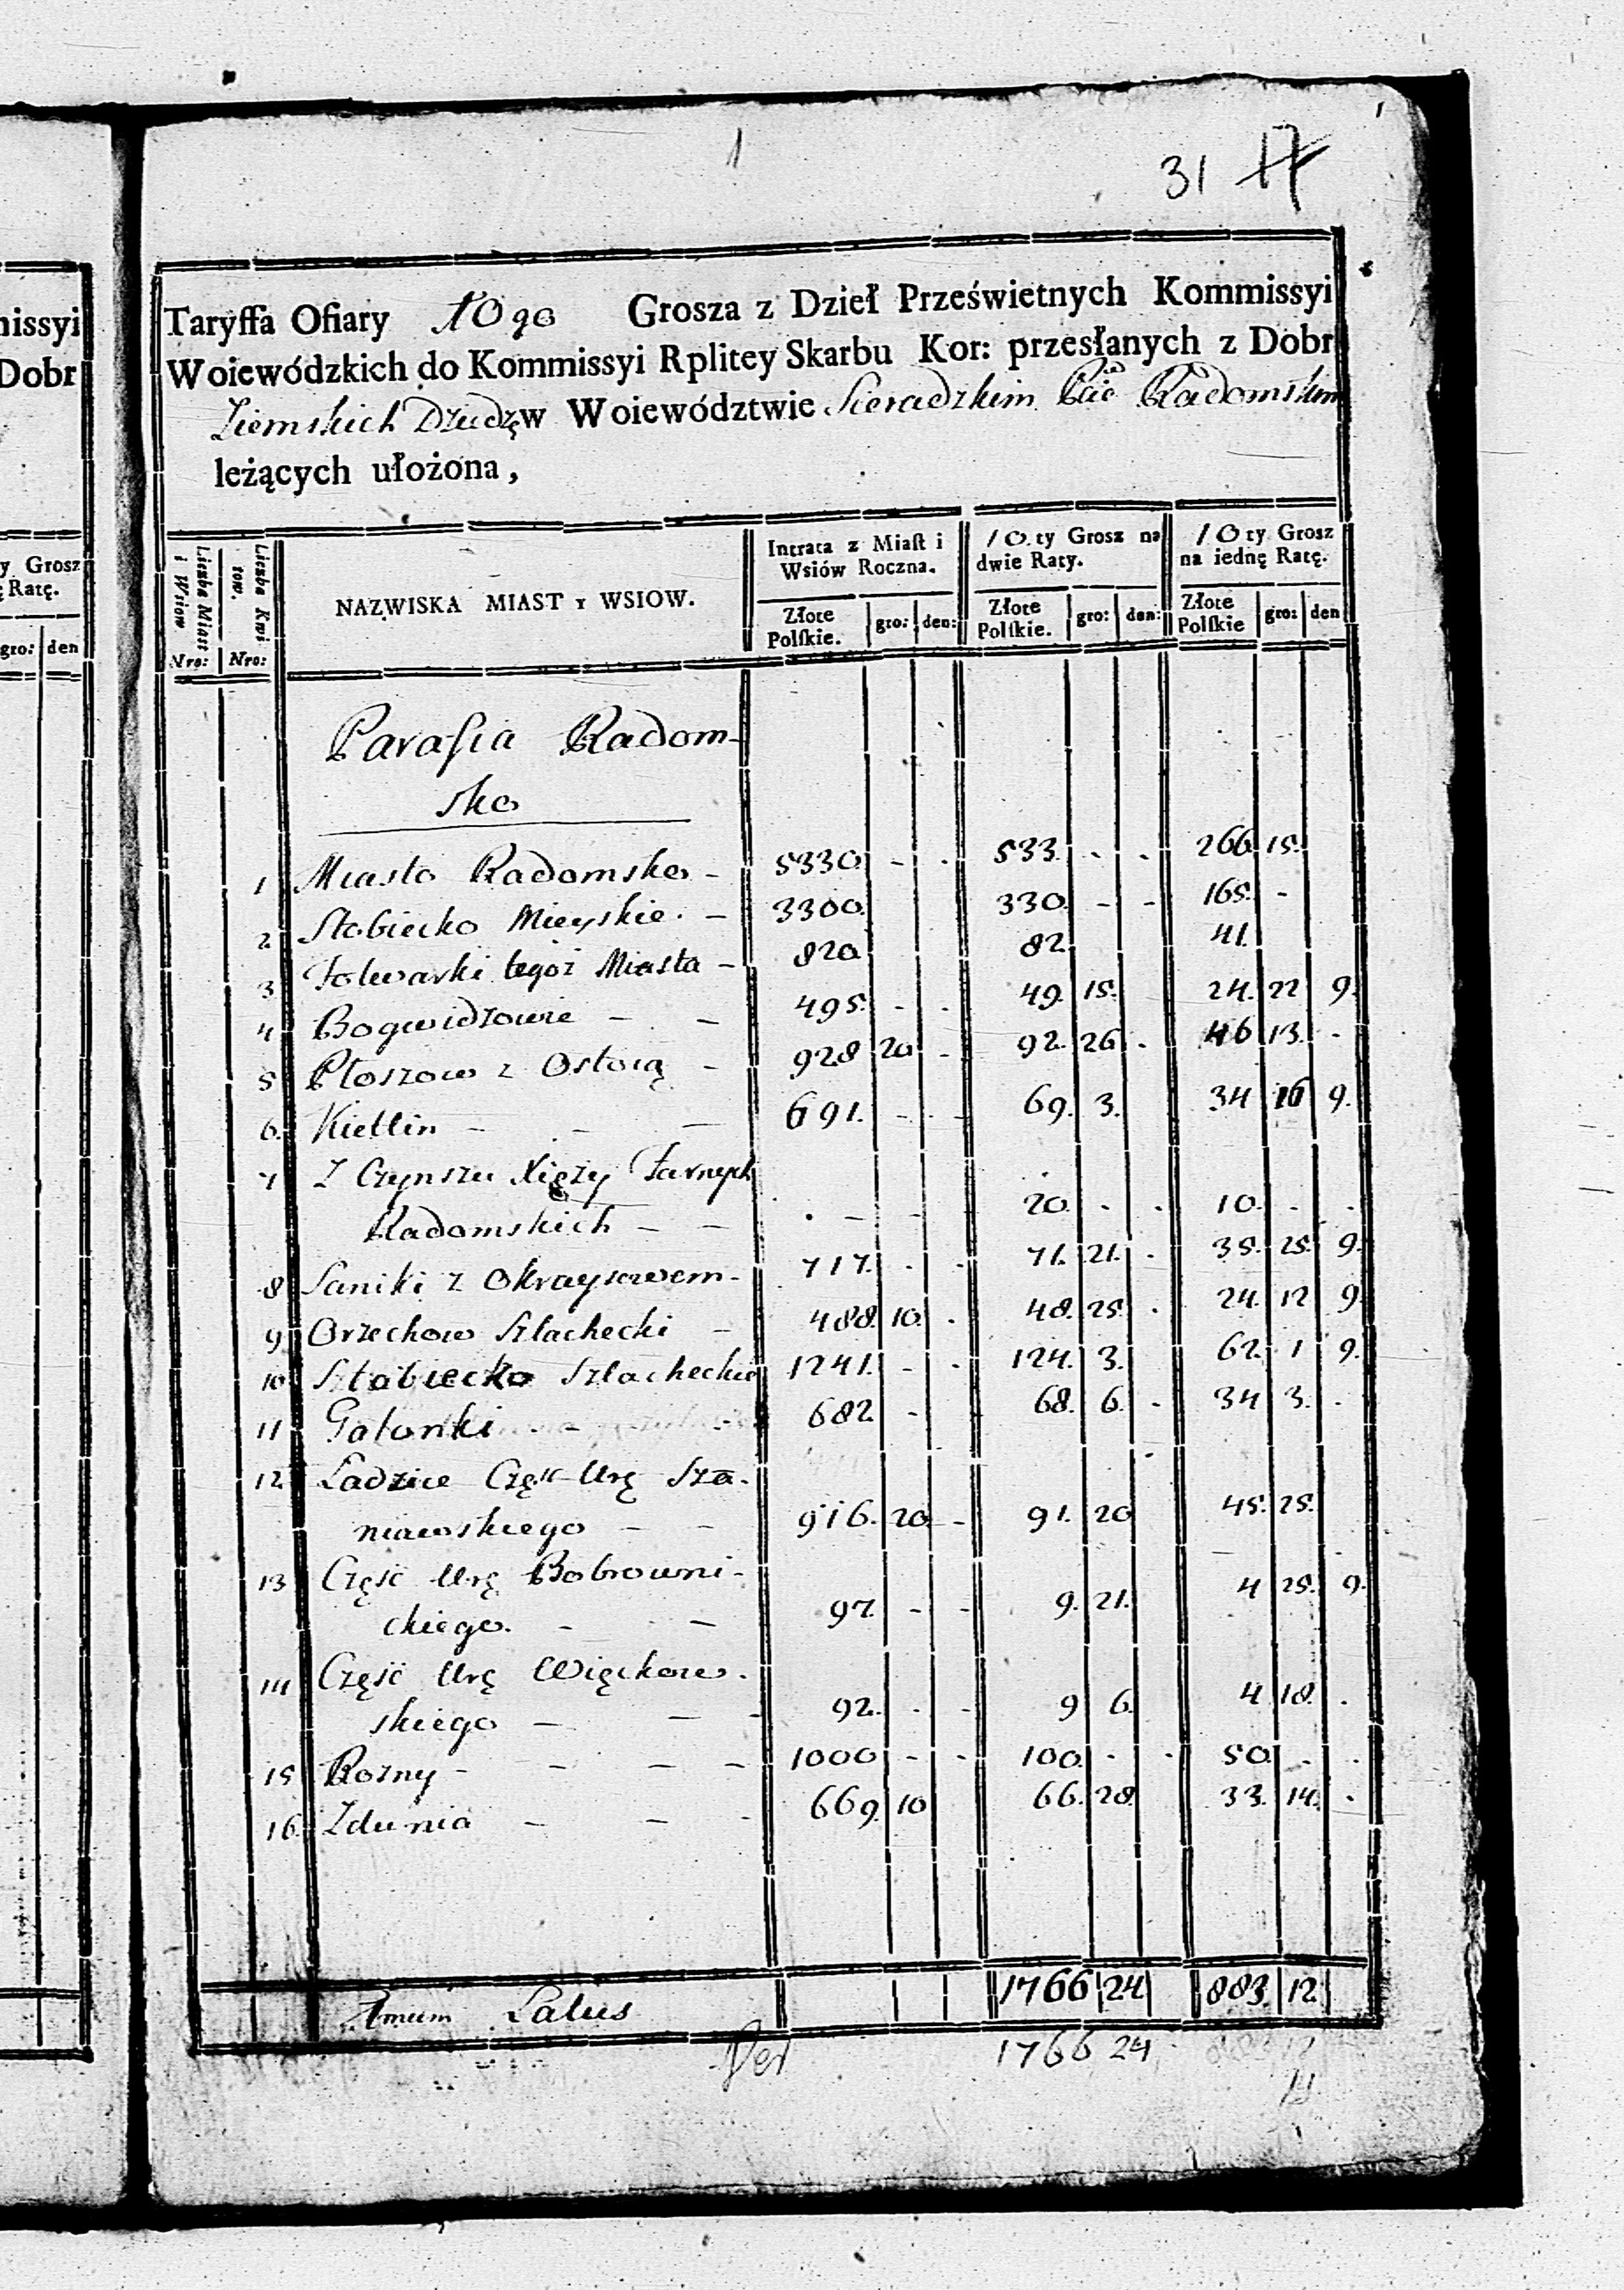 1
31 17
Taryffa Ofiary 10go Grosza z Dzieł Prześwietnych Kommissyi
Woiewódzkich do Kommissyi Rplitey Skarbu Kor: przesłanych z Dobr
Ziemskich Dziedz w Woiewództwie Sieradzkim Pcie Radomskim
leżących ułożona,
Liczba Miast i Wsiow Nro:
Liczba Kwitow. Nro:
NAZWISKA MIAST Y WSIOW.
Intrata z Miast i Wsiów Roczna. Złote Polskie. gro: den:
10.ty Grosz na dwie Raty. Złote Polskie. gro: den:
10 ty Grosz na iednę Ratę. Złote Polskie gro: den
Parafia Radom-
sko
1 Miasto Radomsko - 5330. - . 533. - . 266 15.
2 Stobiecko Mieyskie. - 3300. 330. - - 165. -
3 Folwarki tegoż Miasta - 820 82 41.
4 Bogwidzowie - - 495. - . 49. 15. 24. 22 9.
5 Płoszow z Ostoią - 928 20 - 92. 26 . 46 13. -
6. Kietlin - - - 691. - - 69. 3. 34 16 9.
7 Z Czynszu Xięży Farnych
Radomskich - - . - - 20. . . 10. . .
8 Saniki z Okrayszowem - 717. . . 71. 21. . 35. 25. 9.
9 Orzechow Szlachecki - 488. 10. . 48. 25. . 24. 12 9.
10 Stobiecko Szlacheckie 1241. - . 124. 3. 62. 1 9.
11 Gatonki - - - 682 - 68. 6. - 34 3. .
12 Ladzice Część Urę Sza-
niawskiego - - 916. 20 - 91. 20 45. 25.
13 Część Urę Bobrowni-
ckiego. - - 97. - - 9. 21. 4 25. 9.
14 Część Urę Więckow-
skiego - - - 92. . - 9 6. 4 18. .
15 Rozny - - - - 1000 - - 100. - . 50. . .
16. Zdunia - - - 669. 10 66. 28. 33. 14. .
Latus 1766 24 883. 12
1766 24
nissyi
Dobr
y Grosz
Ratę.
gro: den